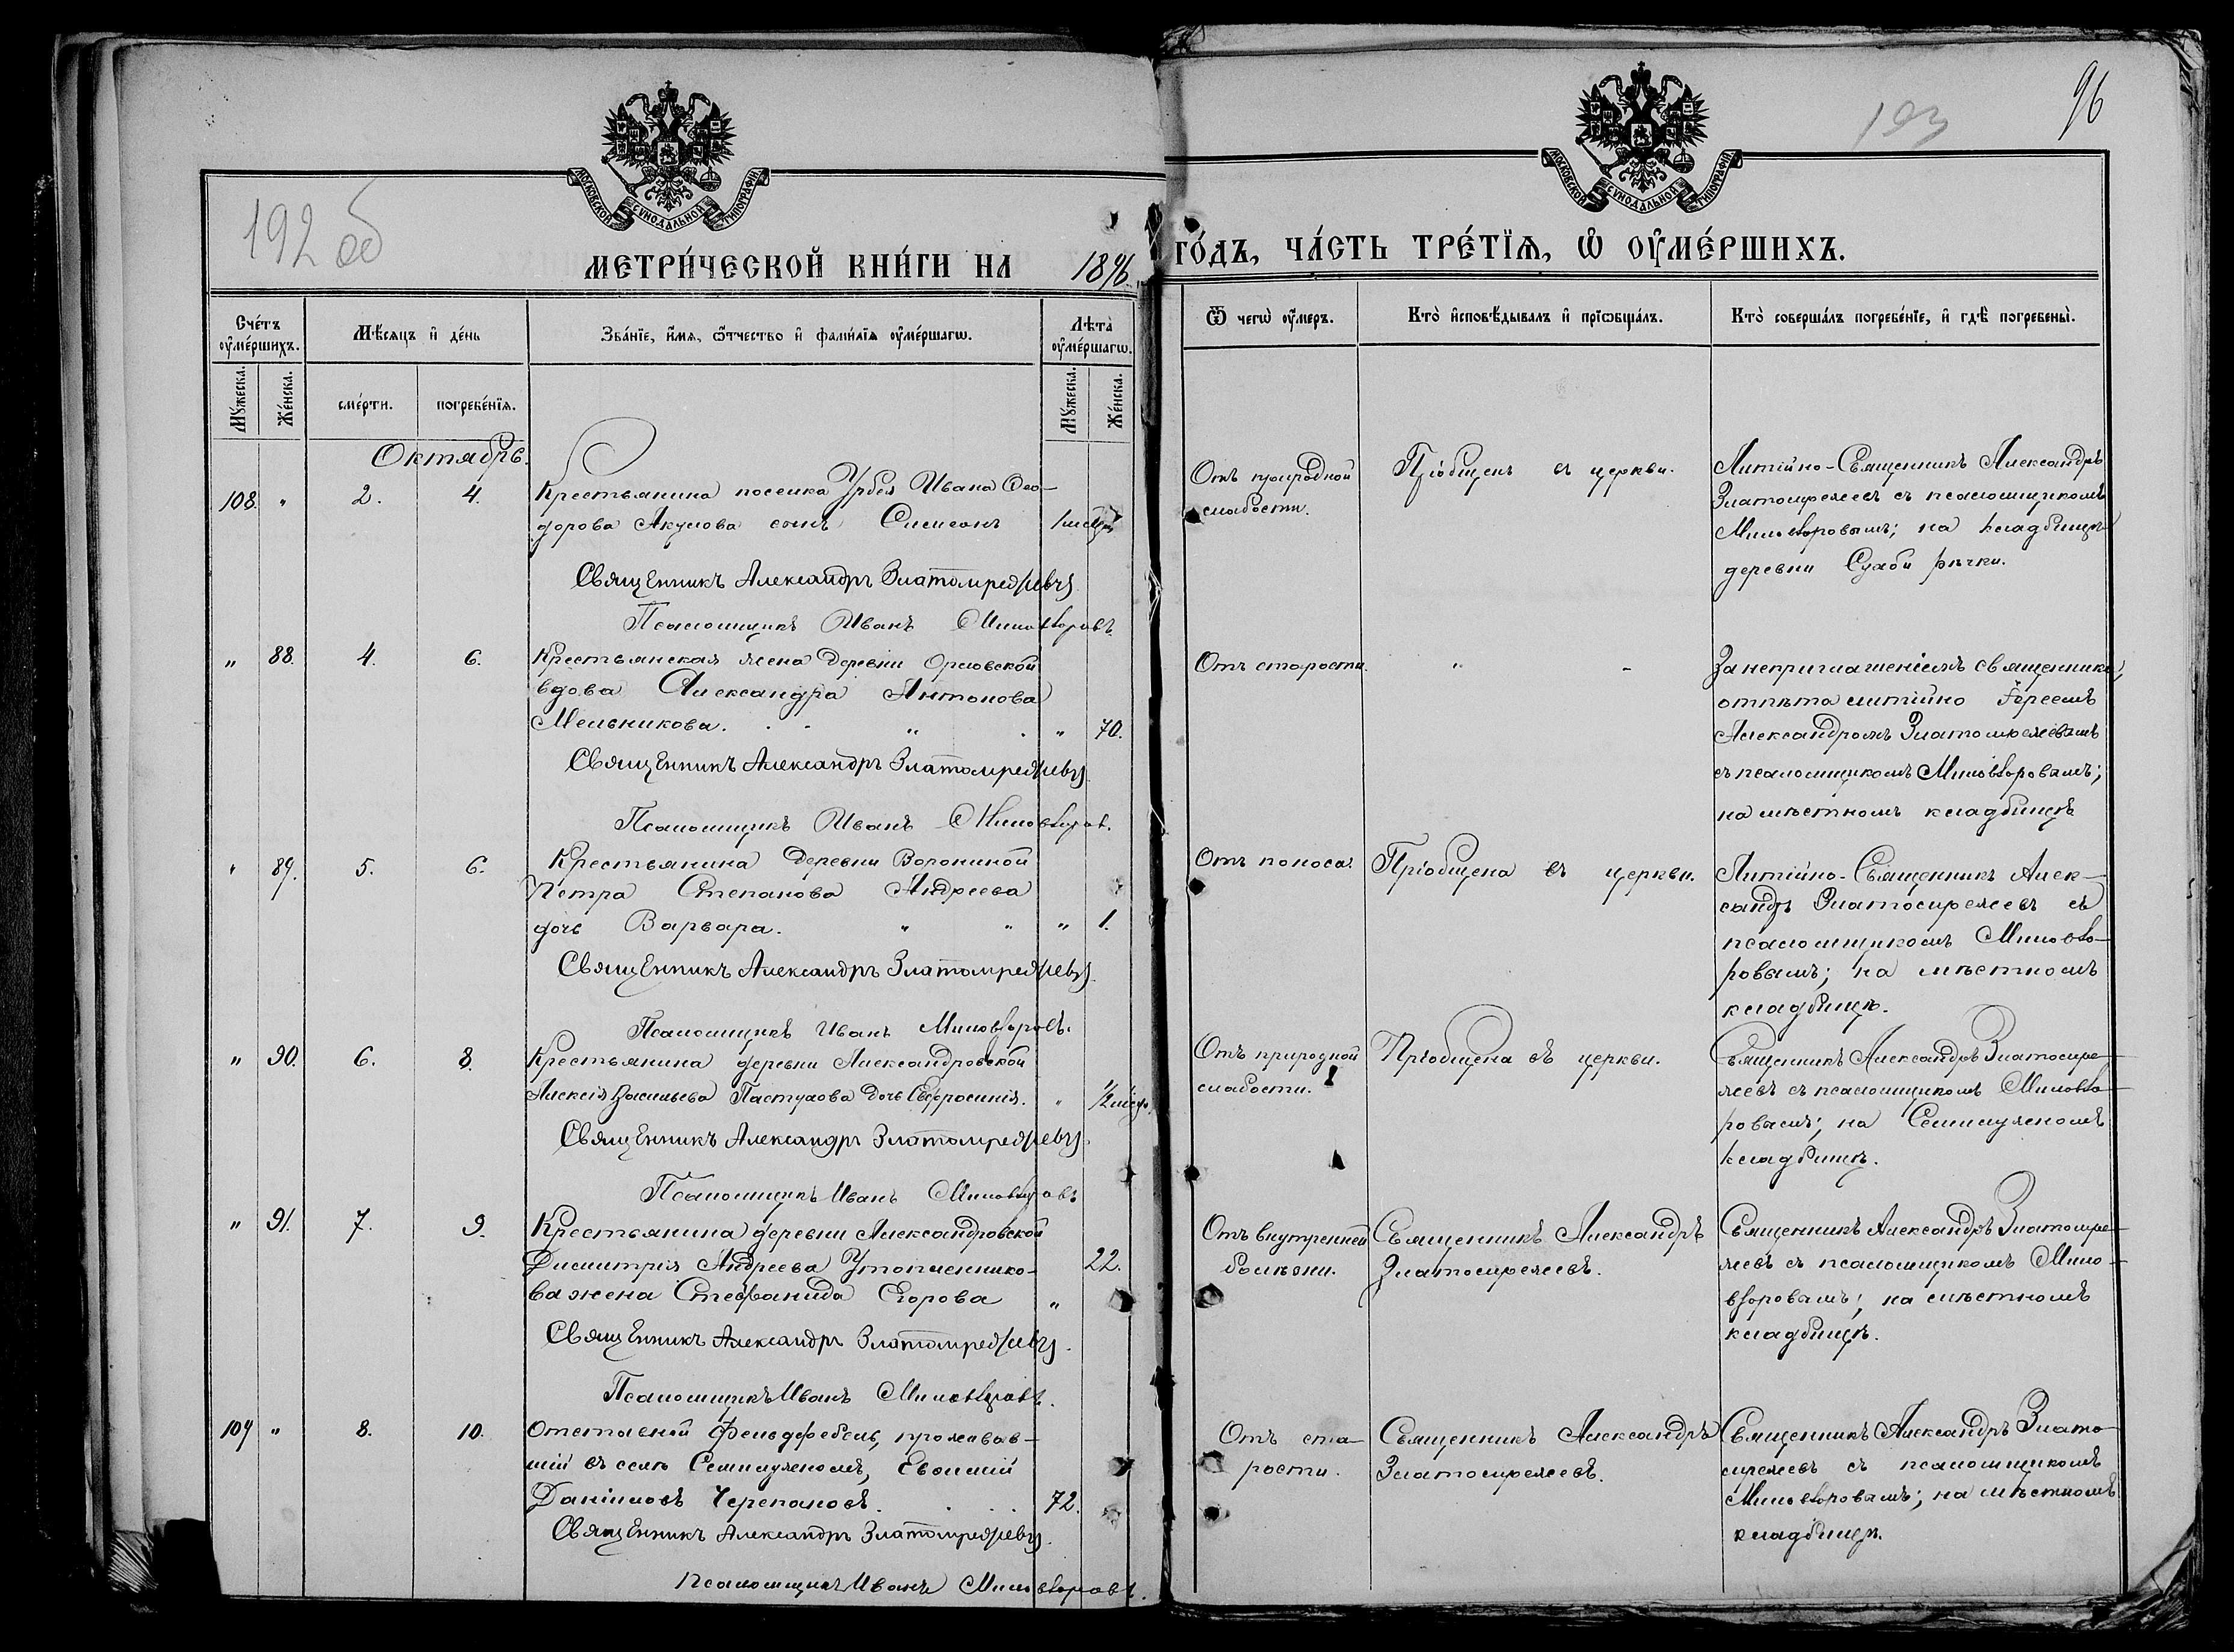 192 об
193
96
МОСКОВСКОЙ СѴНОДАЛЬНОЙ ТИПОГРАФІИ
МОСКОВСКОЙ СѴНОДАЛЬНОЙ ТИПОГРАФІИ
МЕТРИ́ЧЕСКОЙ КНИ́ГИ НА 1896
ГО́ДЪ, ЧА́СТЬ ТРЕ́ТІѦ, Ѡ҆ ОУ҆МЕ́РШИХЪ.
Сче́тъ оу҆ме́ршихъ.
Мꙋ́жеска.
Же́нска.
Мѣ́сяцъ и҆ де́нь
сме́рти.
погребе́нїѧ.
Зва́нїе, и҆́мѧ, ѻ҆́тчество и҆ фами́лїѧ оу҆ме́ршагѡ.
Лѣта̀ оу҆ме́ршагѡ.
Мꙋ́жеска.
Же́нска.
Ѿ чегѡ̀ оу҆́меръ.
Кто̀ и҆сповѣ́дывалъ и҆ прїѡбща́лъ.
Кто̀ соверша́лъ погребе́нїе, и҆ гдѣ̀ погребены̀.
Октябрь.
108. " 2. 4.
Крестьянина поселка Урбея Ивана Ѳео-
дорова Акулова сынъ Симеонъ
Священникъ Александръ
Псаломщикъ Иванъ Миловзоровъ.
Отъ природной
слабости.
Пріобщенъ въ церкви.
Литійно-Священникъ Александръ
съ псаломщикомъ
Миловзоровымъ; на кладбищѣ
деревни
" 88. 4. 6.
Крестьянская жена деревни Орловской
вдова Александра Антонова
Мельникова. " 70.
Священникъ Александръ
Псаломщикъ Иванъ Миловзоровъ.
Отъ старости.
За неприглашеніемъ священника,
отпѣта литійно Іереемъ
Александромъ
съ псаломщикомъ Миловзоровымъ;
на мѣстномъ кладбищѣ
" 89. 5. 6.
Крестьянина деревни Ворониной
Петра Степанова Андреева
дочь Варвара. " 1.
Священникъ Александръ
Псаломщикъ Иванъ Миловзоровъ.
Отъ поноса.
Пріобщена въ церкви.
Литійно-Священникъ Алек-
сандръ съ
псаломщикомъ Миловзо-
ровымъ; на мѣстномъ
кладбищѣ.
" 90. 6. 8.
Крестьянина деревни Александровской
Алексія Васильева Пастухова дочь Евфросинія. " 1/2 мѣся.
Священникъ Александръ
Псаломщикъ Иванъ Миловзоровъ
Отъ природной
слабости.
Пріобщена въ церкви.
Священникъ Александръ
съ псаломщикомъ Миловзо-
ровымъ; на
кладбищѣ.
" 91. 7. 9.
Крестьянина деревни Александровской
Димитрія Андреева Утопленнико-
ва жена Стефанида Егорова " 22.
Священникъ Александръ
Псаломщикъ Иванъ Миловзоровъ.
Отъ внутренней
болѣзни.
Священникъ Александръ
Священникъ Александръ
съ псаломщикомъ Мило-
взоровымъ; на мѣстномъ
кладбищѣ.
109 " 8. 10.
Отставной фельдфебель, проживав-
шій въ селѣ Евѳимій
Даніиловъ Черепановъ. 72.
Священникъ Александръ
Псаломщикъ Иванъ Миловзоровъ.
Отъ ста-
рости.
Священникъ Александръ
Священникъ Александръ
съ псаломщикомъ
Миловзоровымъ; на мѣстномъ
кладбищѣ.